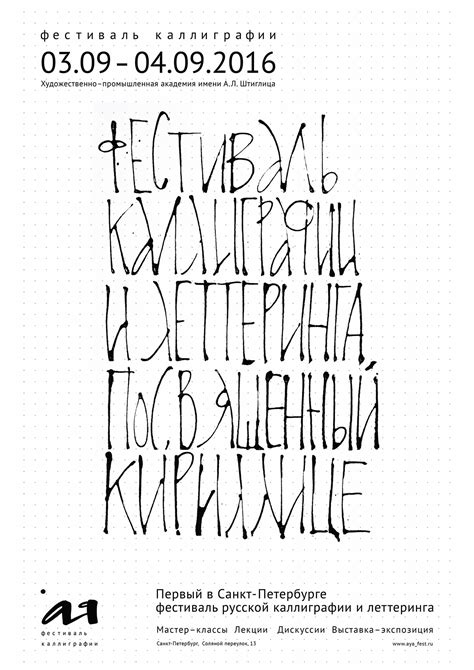 фестиваль каллиграфии
03.09 – 04.09.2016
Художественно-промышленная академия имени А.Л. Штиглица
ФЕСТИВАЛЬ
КАЛЛИГРАФИИ
И ЛЕТТЕРИНГА,
ПОСВЯЩЕННЫЙ
КИРИЛЛИЦЕ
ая
фестиваль
каллиграфии
Первый в Санкт-Петербурге
фестиваль русской каллиграфии и леттеринга
Мастер-классы Лекции Дискуссии Выставка-экспозиция
Санкт-Петербург, Соляной переулок, 13
www.aya_fest.ru